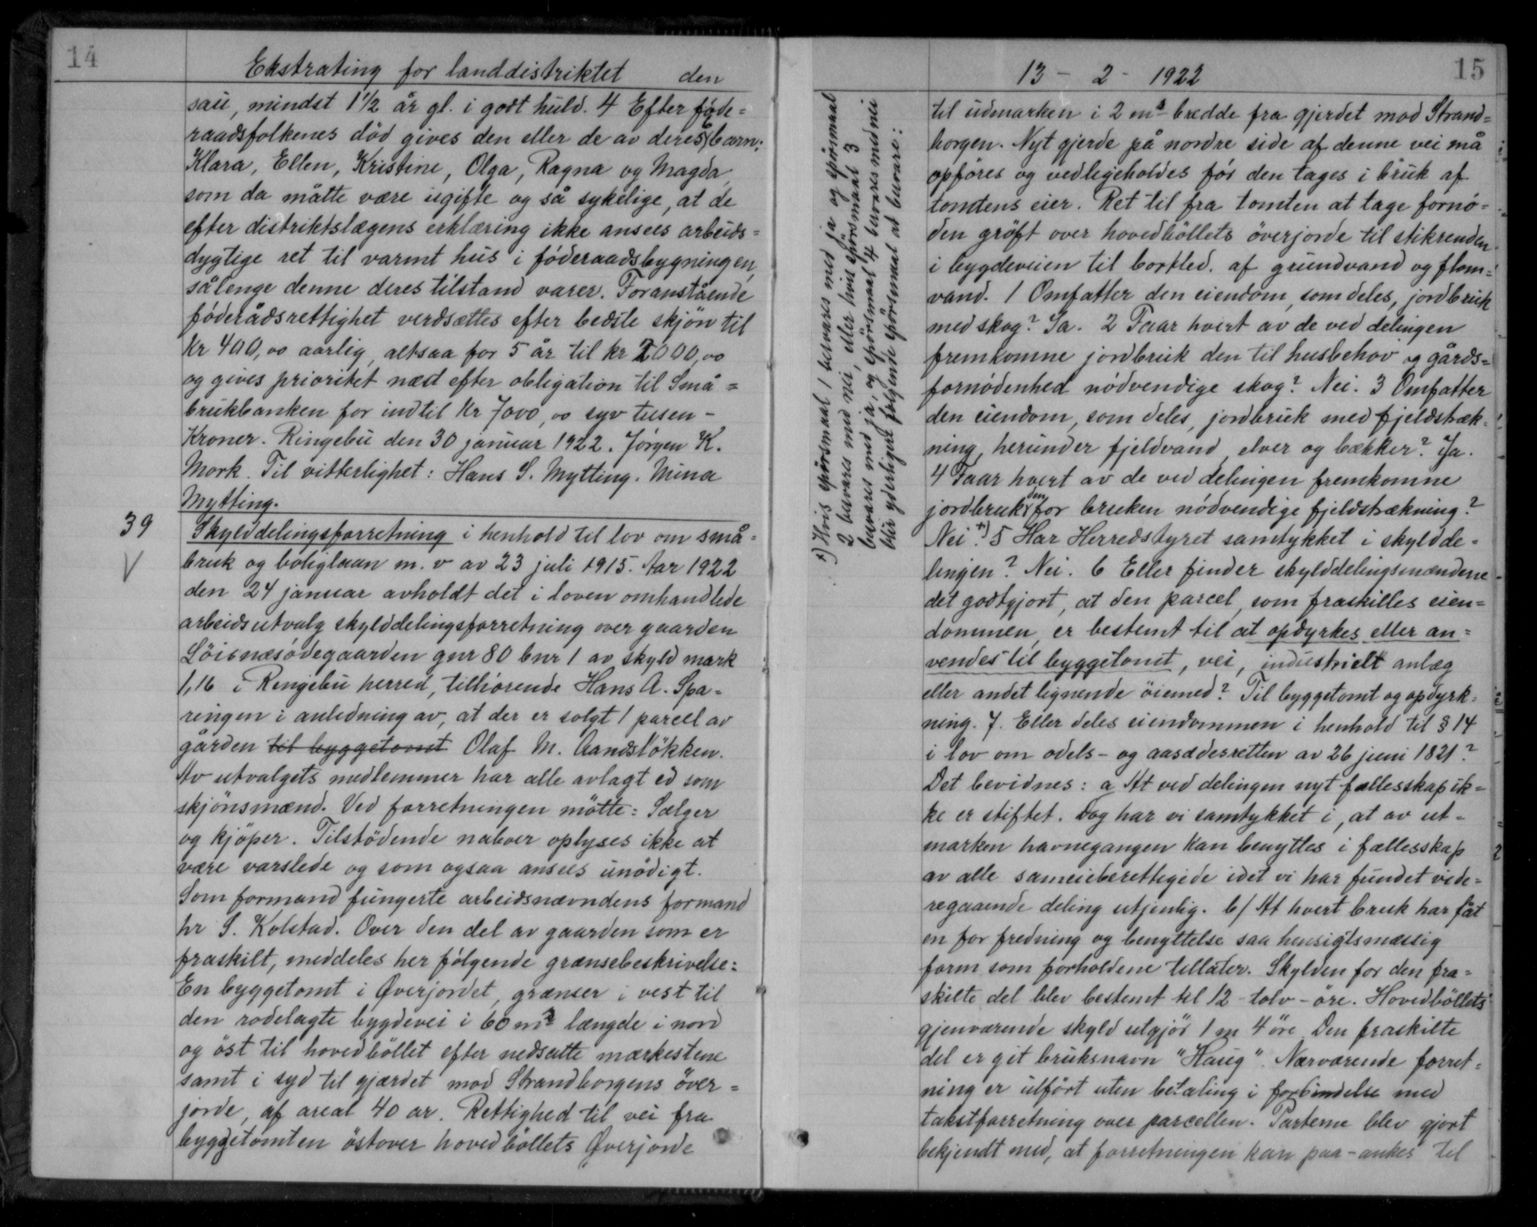 14
Ekstrating for landdistriktet den
sau, mindst 1 1/2 år gl. i godt huld. 4 Efter føde=
raadsfolkenes död gives den eller de av deres barn:
Klara, Ellen, Kristine, Olga, Ragna og Magda,
som da måtte være ugifte og så sykelige, at de
efter distriktslægens erklæring ikke ansees arbeids=
dygtige ret til varmt hus i föderaadsbygningen,
sålenge denne deres tilstand varer. Foranstående
föderådsrettighet verdsættes efter bedste skjön til
kr 400,00 aarlig, altsaa for 5 år til kr 2000,00
og gives prioritet næst efter obligation til Små=
brukbanken for indtil kr 7000,00 syv tusen-
Kroner. Ringebu den 30 januar 1922. Jörgen K.
Mork. Til vitterlighet: Hans S. Mytting. Mina
Mytting.
39 Skylddelingsforretning i henhold til lov om små=
V bruk og boliglaan m. v av 23 juli 1915. Aar 1922
den 24 januar avholdt det i loven omhandlede
arbeidsutvalg skylddelingsforretning over gaarden
Löisnæsödegaarden gnr 80 bnr 1 av skyld mark
1,16 i Ringebu herred, tilhörende Hans A. Spa=
ringen i anledning av, at der er solgt 1 parcel av
gården til byggetomt Olaf M. Aandslökken.
Av utvalgets medlemmer har alle avlagt ed som
skjönsmænd. Ved forretningen mötte: Sælger
og kjöper. Tilstödende naboer oplyses ikke at
være varslede og som ogsaa ansees unödigt.
Som formand fungerte arbeidsnævndens formand
hr S. Kolstad. Over den del av gaarden som er
fraskilt, meddeles her fölgende grænsebeskrivelse:
En byggetomt i Øverjordet, grænser i vest til
den rodelagte bygdevei i 60 m længde i nord
og öst til hovedböllet efter nedsatte mærkestene
samt i syd til gjærdet mod Strandborgens över=
jorde, af areal 40 ar. Rettighed til vei fra
byggetomten östover hovedböllets Øverjorde
13 - 2 - 1922
15
x) Hvis spörsmaal 1 besvares med ja og spörsmaal
2 besvares med nei, eller hvis spörsmaal 3
besvares med ja, og spörsmaal 4 besvares med nei
blir yderligere fölgende spörsmaal at besvare:
til udmarken i 2 m bredde fra gjerdet mod Strand=
borgen. Nyt gjerde på nordre side af denne vei må
opföres og vedligeholdes för den tages i bruk af
tomtens eier. Ret til fra tomten at tage fornö=
den gröft over hovedböllets överjorde til stikrenden
i bygdeveien til bortled. af grundvand og flom=
vand. 1 Omfatter den eiendom, som deles, jordbruk
med skog? Ja. 2 Faar hvert av de ved delingen
fremkomne jordbruk den til husbehov og gårds=
fornödenhed nödvendige skog? Nei. 3 Omfatter
den eiendom, som deles, jordbruk med fjeldstræk=
ning, herunder fjeldvand, elver og bækker? Ja.
4 Faar hvert av de ved delingen fremkomne
jordbruk den for bruken nödvendige fjeldstrækning?
Nei. x) 5 Har Herredstyret samtykket i skyldde=
lingen? Nei. 6 Eller finder skylddelingsmændene
det godtgjort, at den parcel, som fraskilles eien=
dommen, er bestemt til at opdyrkes eller an=
vendes til byggetomt, vei, industrielt anlæg
eller andet lignende öiemed? Til byggetomt og opdyrk=
ning. 7. Eller deles eiendommen i henhold til § 14
i lov om odels- og aasædesretten av 26 juni 1821?
Det bevidnes: a At ved delingen nyt fællesskap ik=
ke er stiftet. Dog har vi samtykket i, at av ut=
marken havnegangen kan benyttes i fællesskap
av alle sameieberettigede idet vi har fundet vide=
regaaende deling utjenlig. b/ At hvert bruk har fåt
en for fredning og benyttelse saa hensigtsmæssig
form som forholdene tillater. Skylden for den fra=
skilte del blev bestemt til 12 - tolv - öre. Hovedböllets
gjenværende skyld utgjör 1 m 4 öre. Den fraskilte
del er git bruksnavn "Haug". Nærværende forret=
ning er utfört uten betaling i forbindelse med
takstforretning over parcellen. Parterne blev gjort
bekjendt med, at forretningen kan paa-ankes til